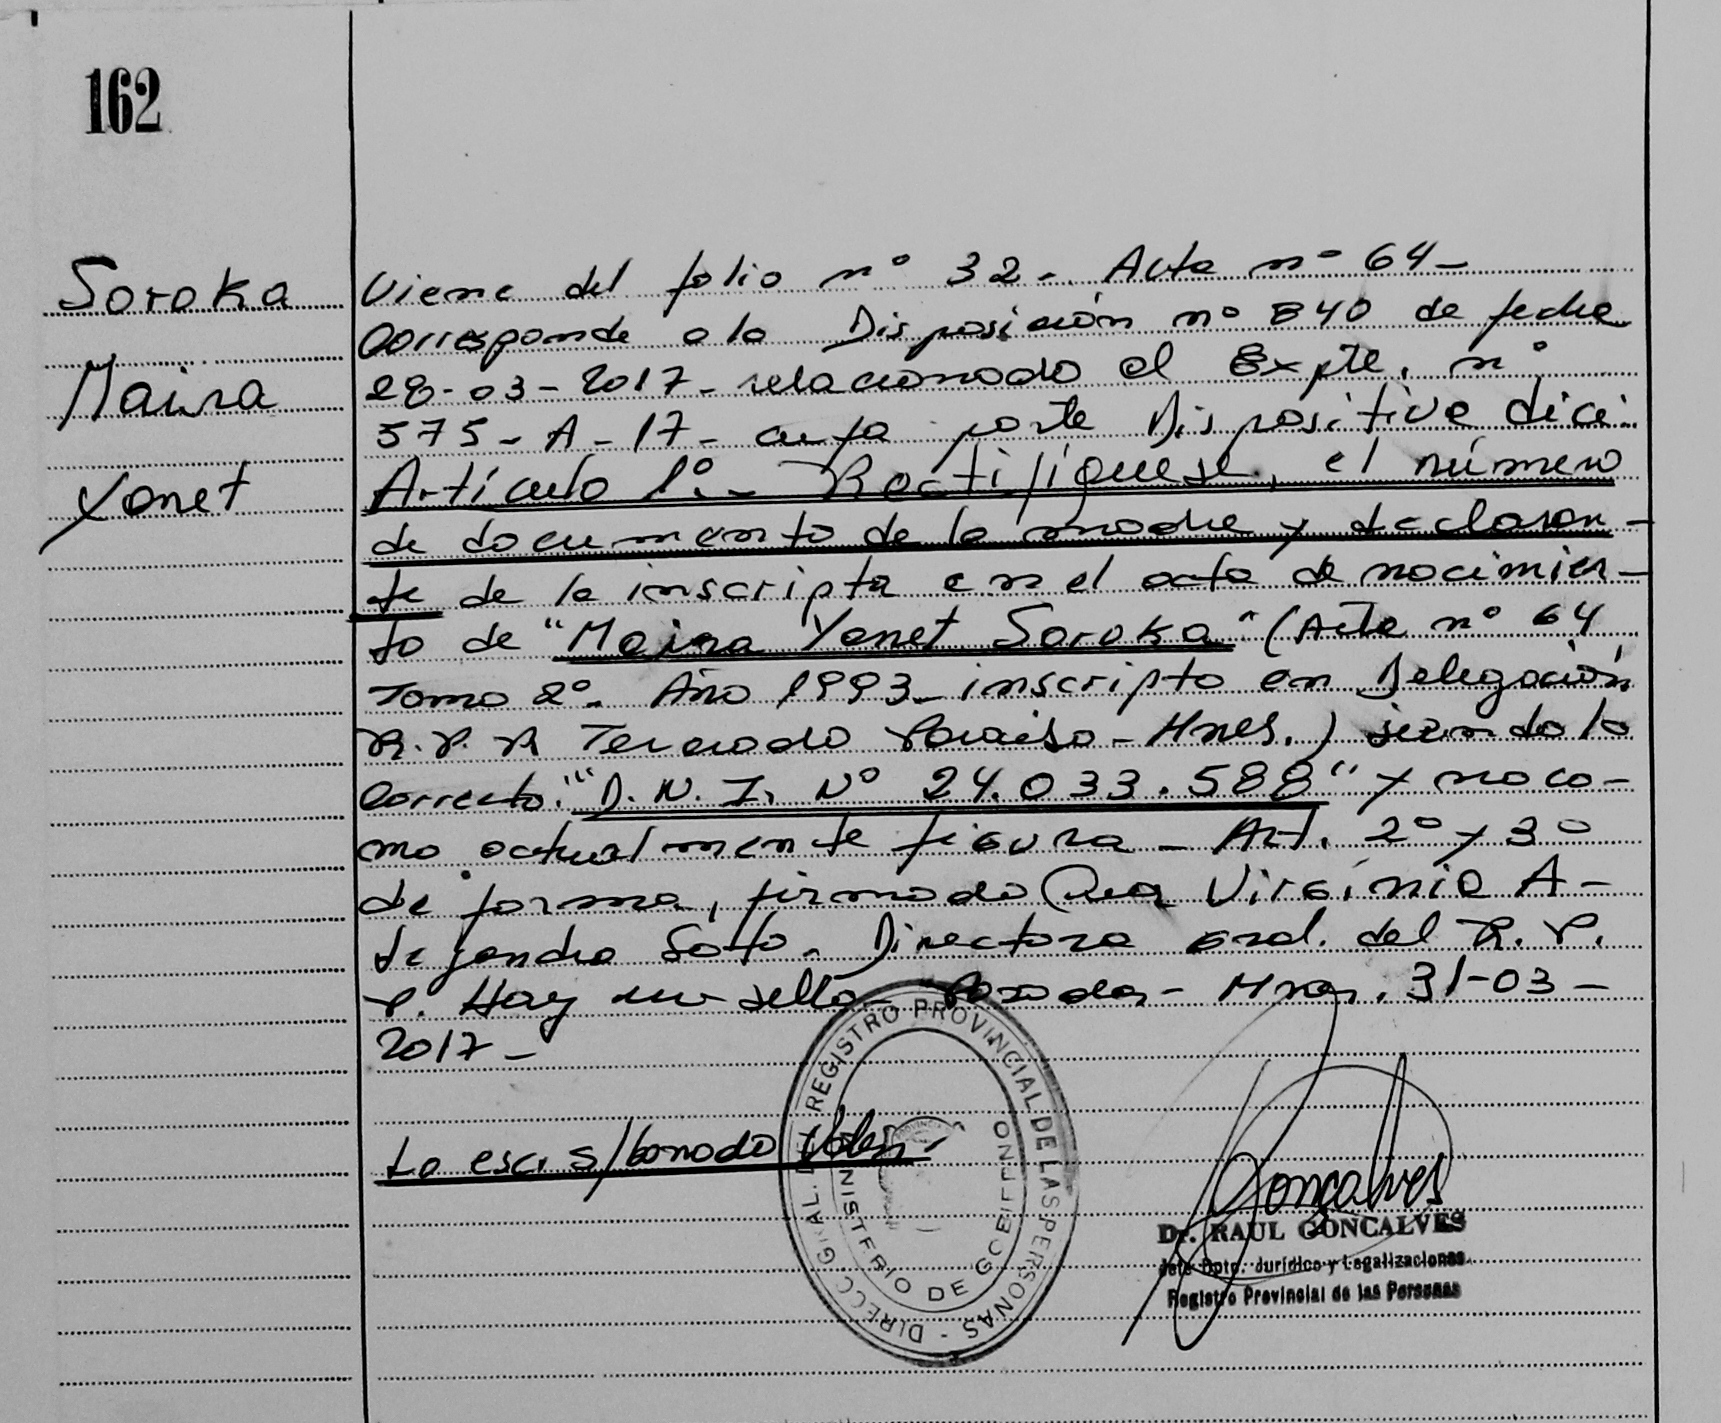 162
Soroka
Maira
Yanet
Viene del folio nº 32 - Acta nº 64 -
Corresponde a la Disposición nº 840 de fecha
28-03-2017 - relacionado el Expte. nº
575-A-17 - cuya parte Dispositiva dice:
Artículo 1º.- Rectifíquese, el número
de documento de la madre y declaran-
te de la inscripta en el acta de nacimien-
to de "Maira Yanet Soroka" (Acta nº 64
Tomo 2º. Año 1993 - inscripto en Delegación
R.P.P. Paraiso - Mnes.) siendo lo
correcto: "D.N.I. Nº 24.033.588" y no co-
mo actualmente figura - Art. 2º y 3º
de forma, firmado Virginia A-
lejandra Sotto - Directora Gral. del R.P.
P. Hay un sello - Posadas - Mnes. 31-03-
2017 -
Lo esc. s/borrado Vale.
DIRECC. GRAL. DEL REGISTRO PROVINCIAL DE LAS PERSONAS -
MINISTERIO DE GOBIERNO
Gonçalves
Dr. RAUL GONCALVES
Jefe Dpto. Jurídico y Legalizaciones
Registro Provincial de las Personas